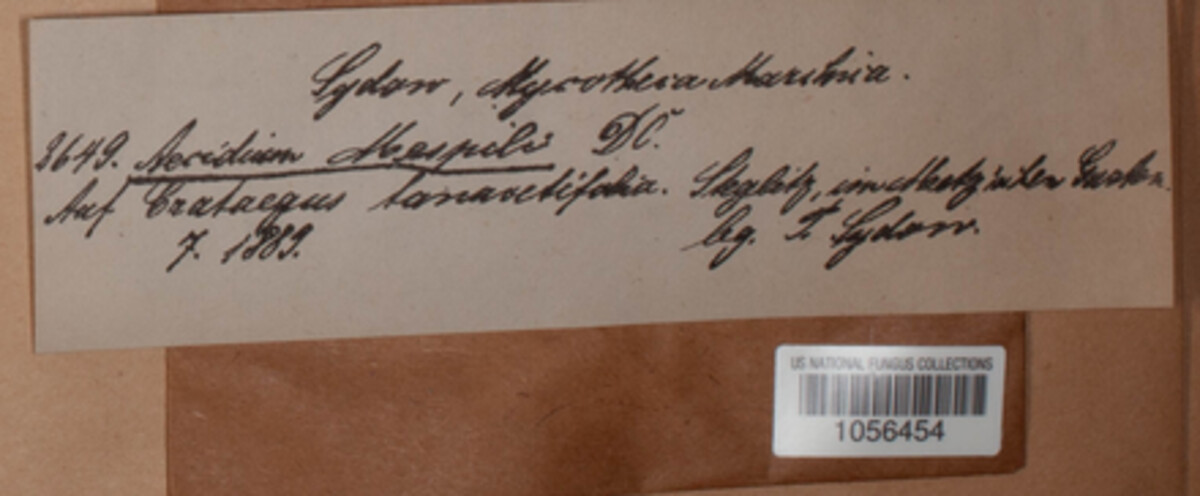 Sydow, Mycotheca Marchica.
2649. Aecidium Mespili DC.
Auf Crataegus tanacetifolia. Steglitz, im Metz'schen Garten.
7. 1889. lg. P. Sydow.
US NATIONAL FUNGUS COLLECTIONS
1056454